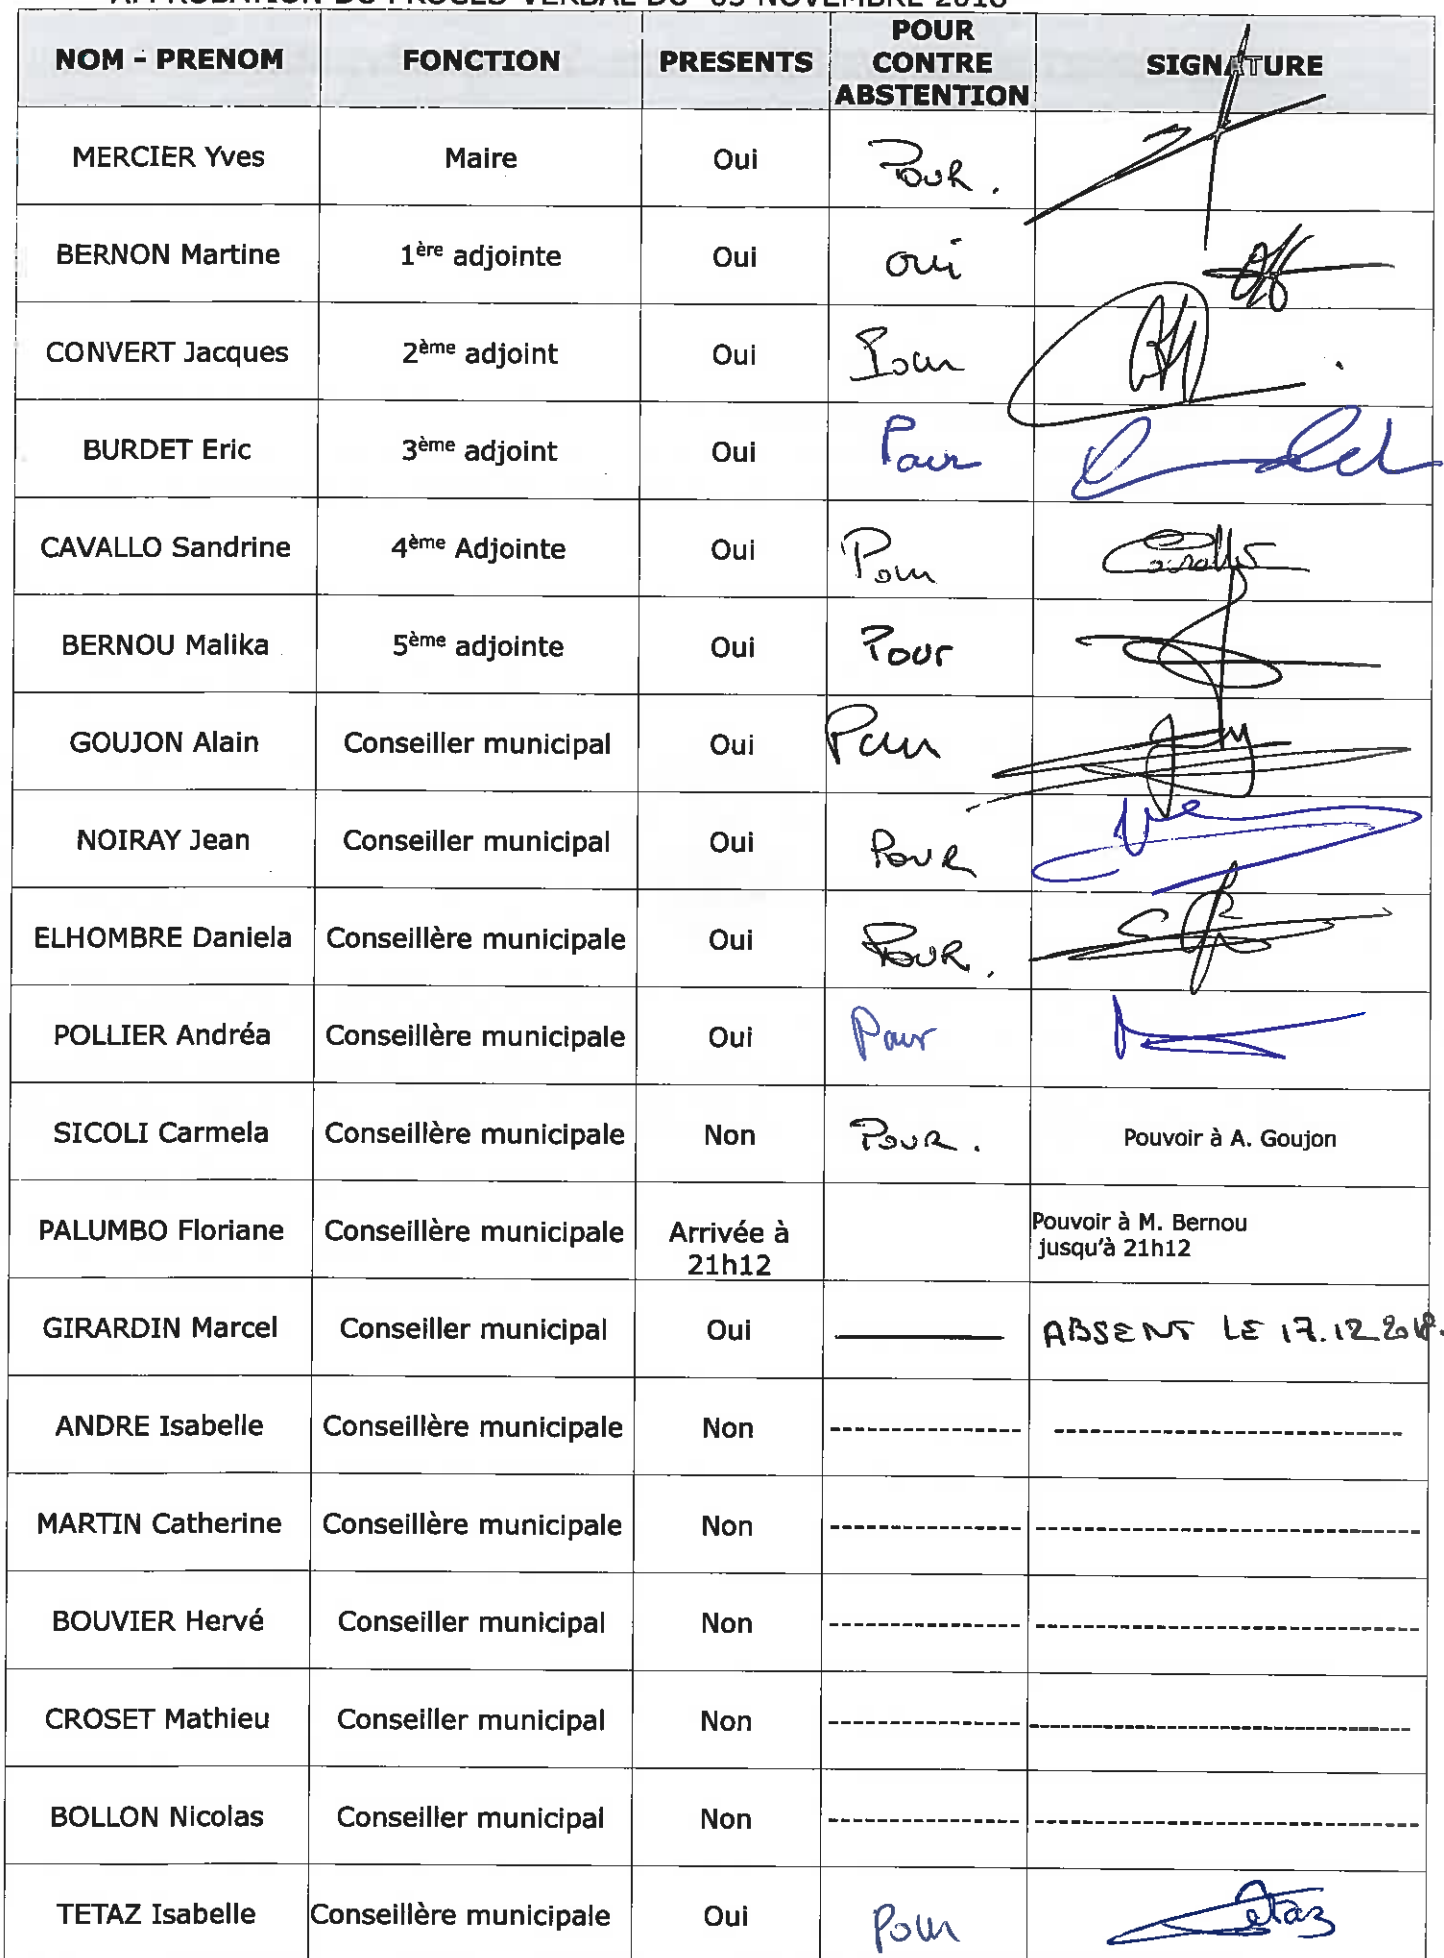 APPROBATION DU PROCES VERBAL DU 05 NOVEMBRE 2018
NOM - PRENOM FONCTION PRESENTS POUR CONTRE ABSTENTION SIGNATURE
MERCIER Yves Maire Oui Pour.
BERNON Martine 1ère adjointe Oui oui
CONVERT Jacques 2ème adjoint Oui Pour
BURDET Eric 3ème adjoint Oui Pour
CAVALLO Sandrine 4ème Adjointe Oui Pour Cavallo
BERNOU Malika 5ème adjointe Oui Pour
GOUJON Alain Conseiller municipal Oui Pour
NOIRAY Jean Conseiller municipal Oui POUR
ELHOMBRE Daniela Conseillère municipale Oui POUR.
POLLIER Andréa Conseillère municipale Oui Pour
SICOLI Carmela Conseillère municipale Non POUR. Pouvoir à A. Goujon
PALUMBO Floriane Conseillère municipale Arrivée à 21h12 Pouvoir à M. Bernou jusqu'à 21h12
GIRARDIN Marcel Conseiller municipal Oui ABSENT LE 17.12.2018.
ANDRE Isabelle Conseillère municipale Non
MARTIN Catherine Conseillère municipale Non
BOUVIER Hervé Conseiller municipal Non
CROSET Mathieu Conseiller municipal Non
BOLLON Nicolas Conseiller municipal Non
TETAZ Isabelle Conseillère municipale Oui Pour Tetaz